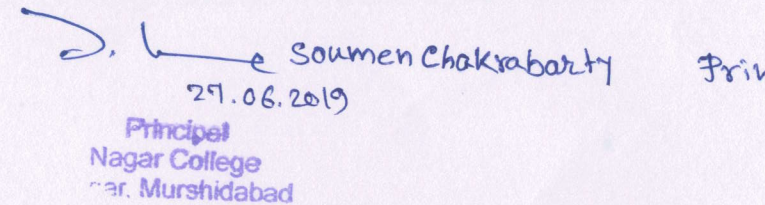 Soumen Chakrabarty
27.06.2019
Principal
Nagar College
Murshidabad